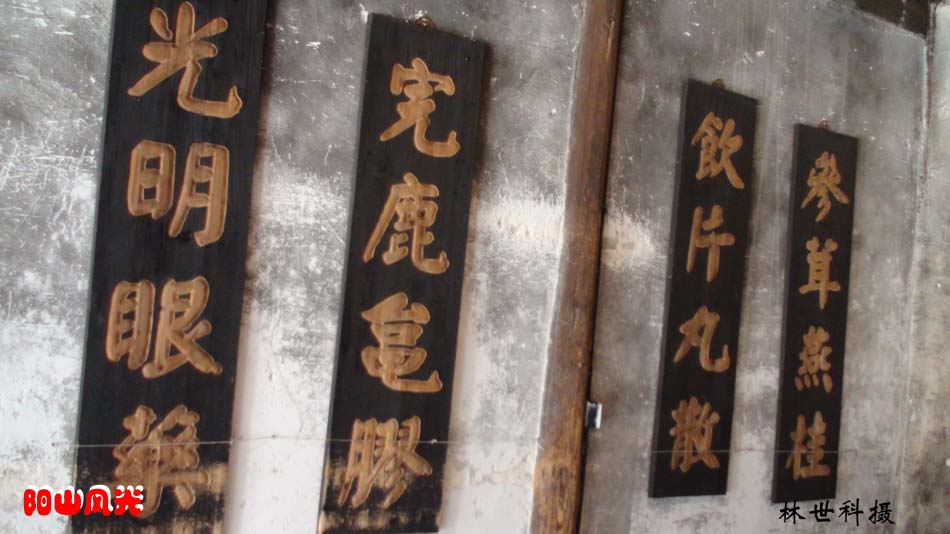 參茸燕桂
飲片丸散
虎鹿亀膠
光明眼藥
阳山风光
林世科摄